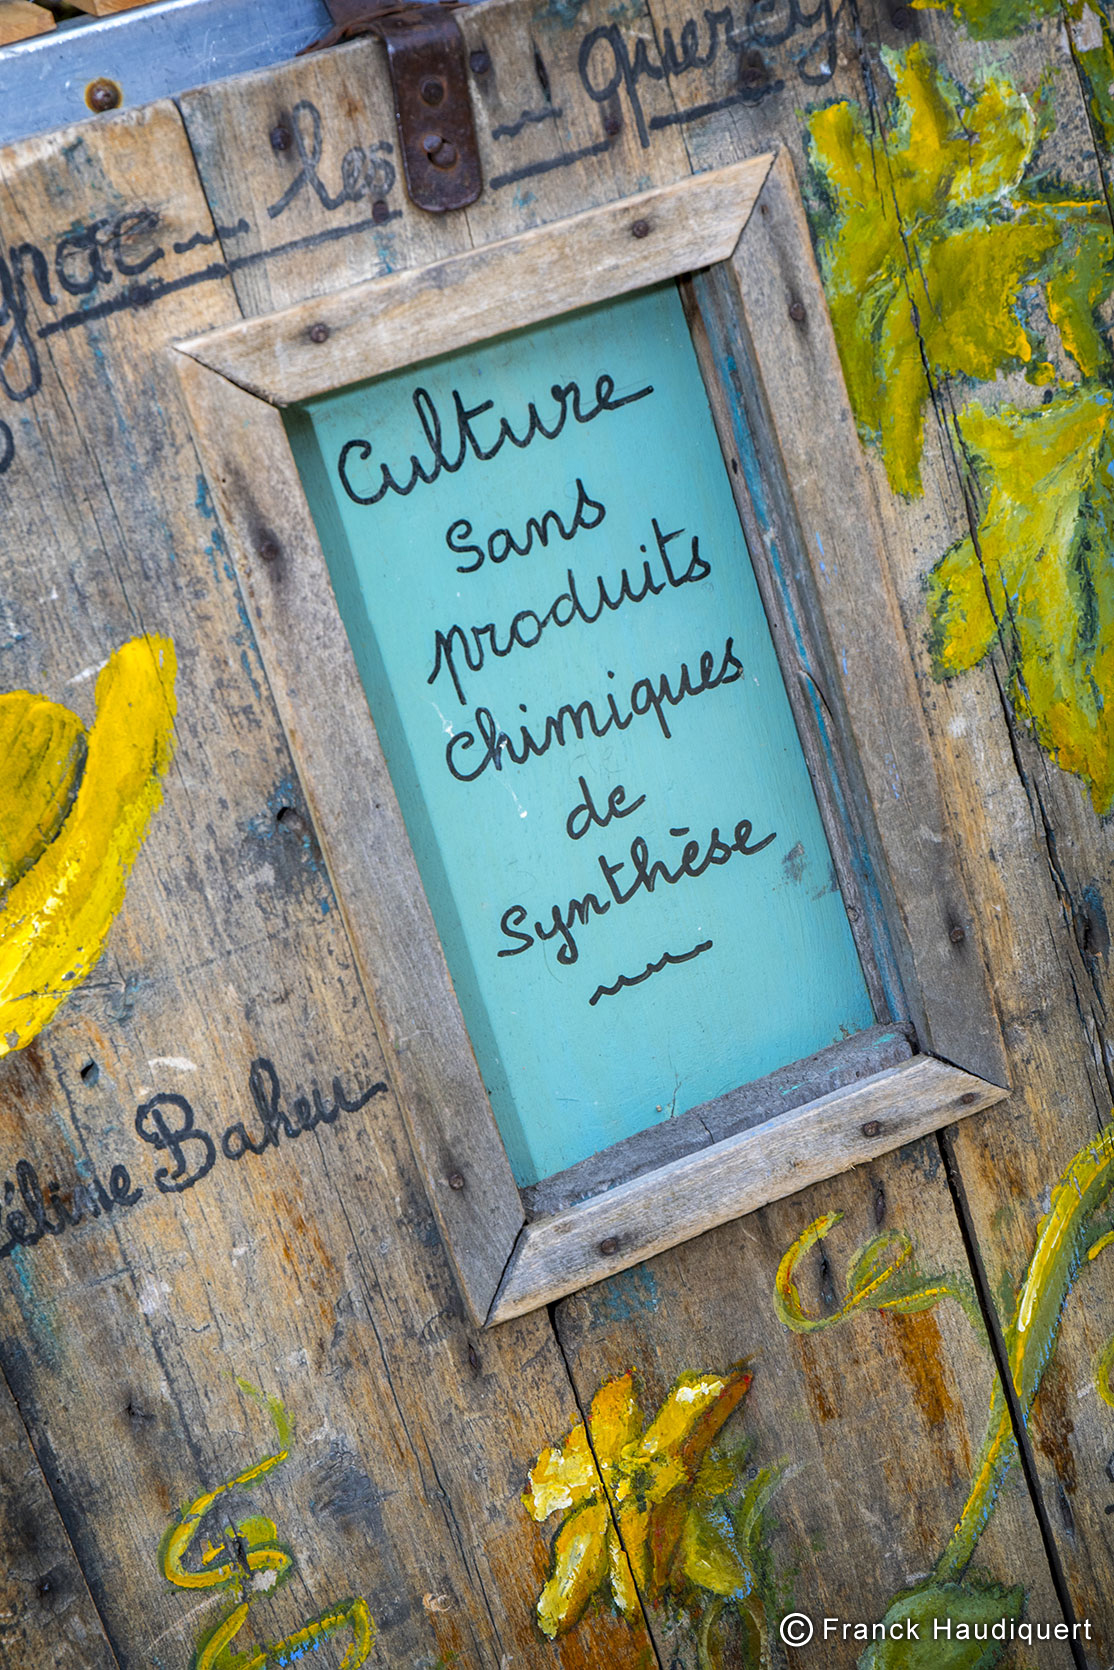 les quercy
Culture
sans
produits
chimiques
de
Synthèse
Baheu
© Franck Haudiquert